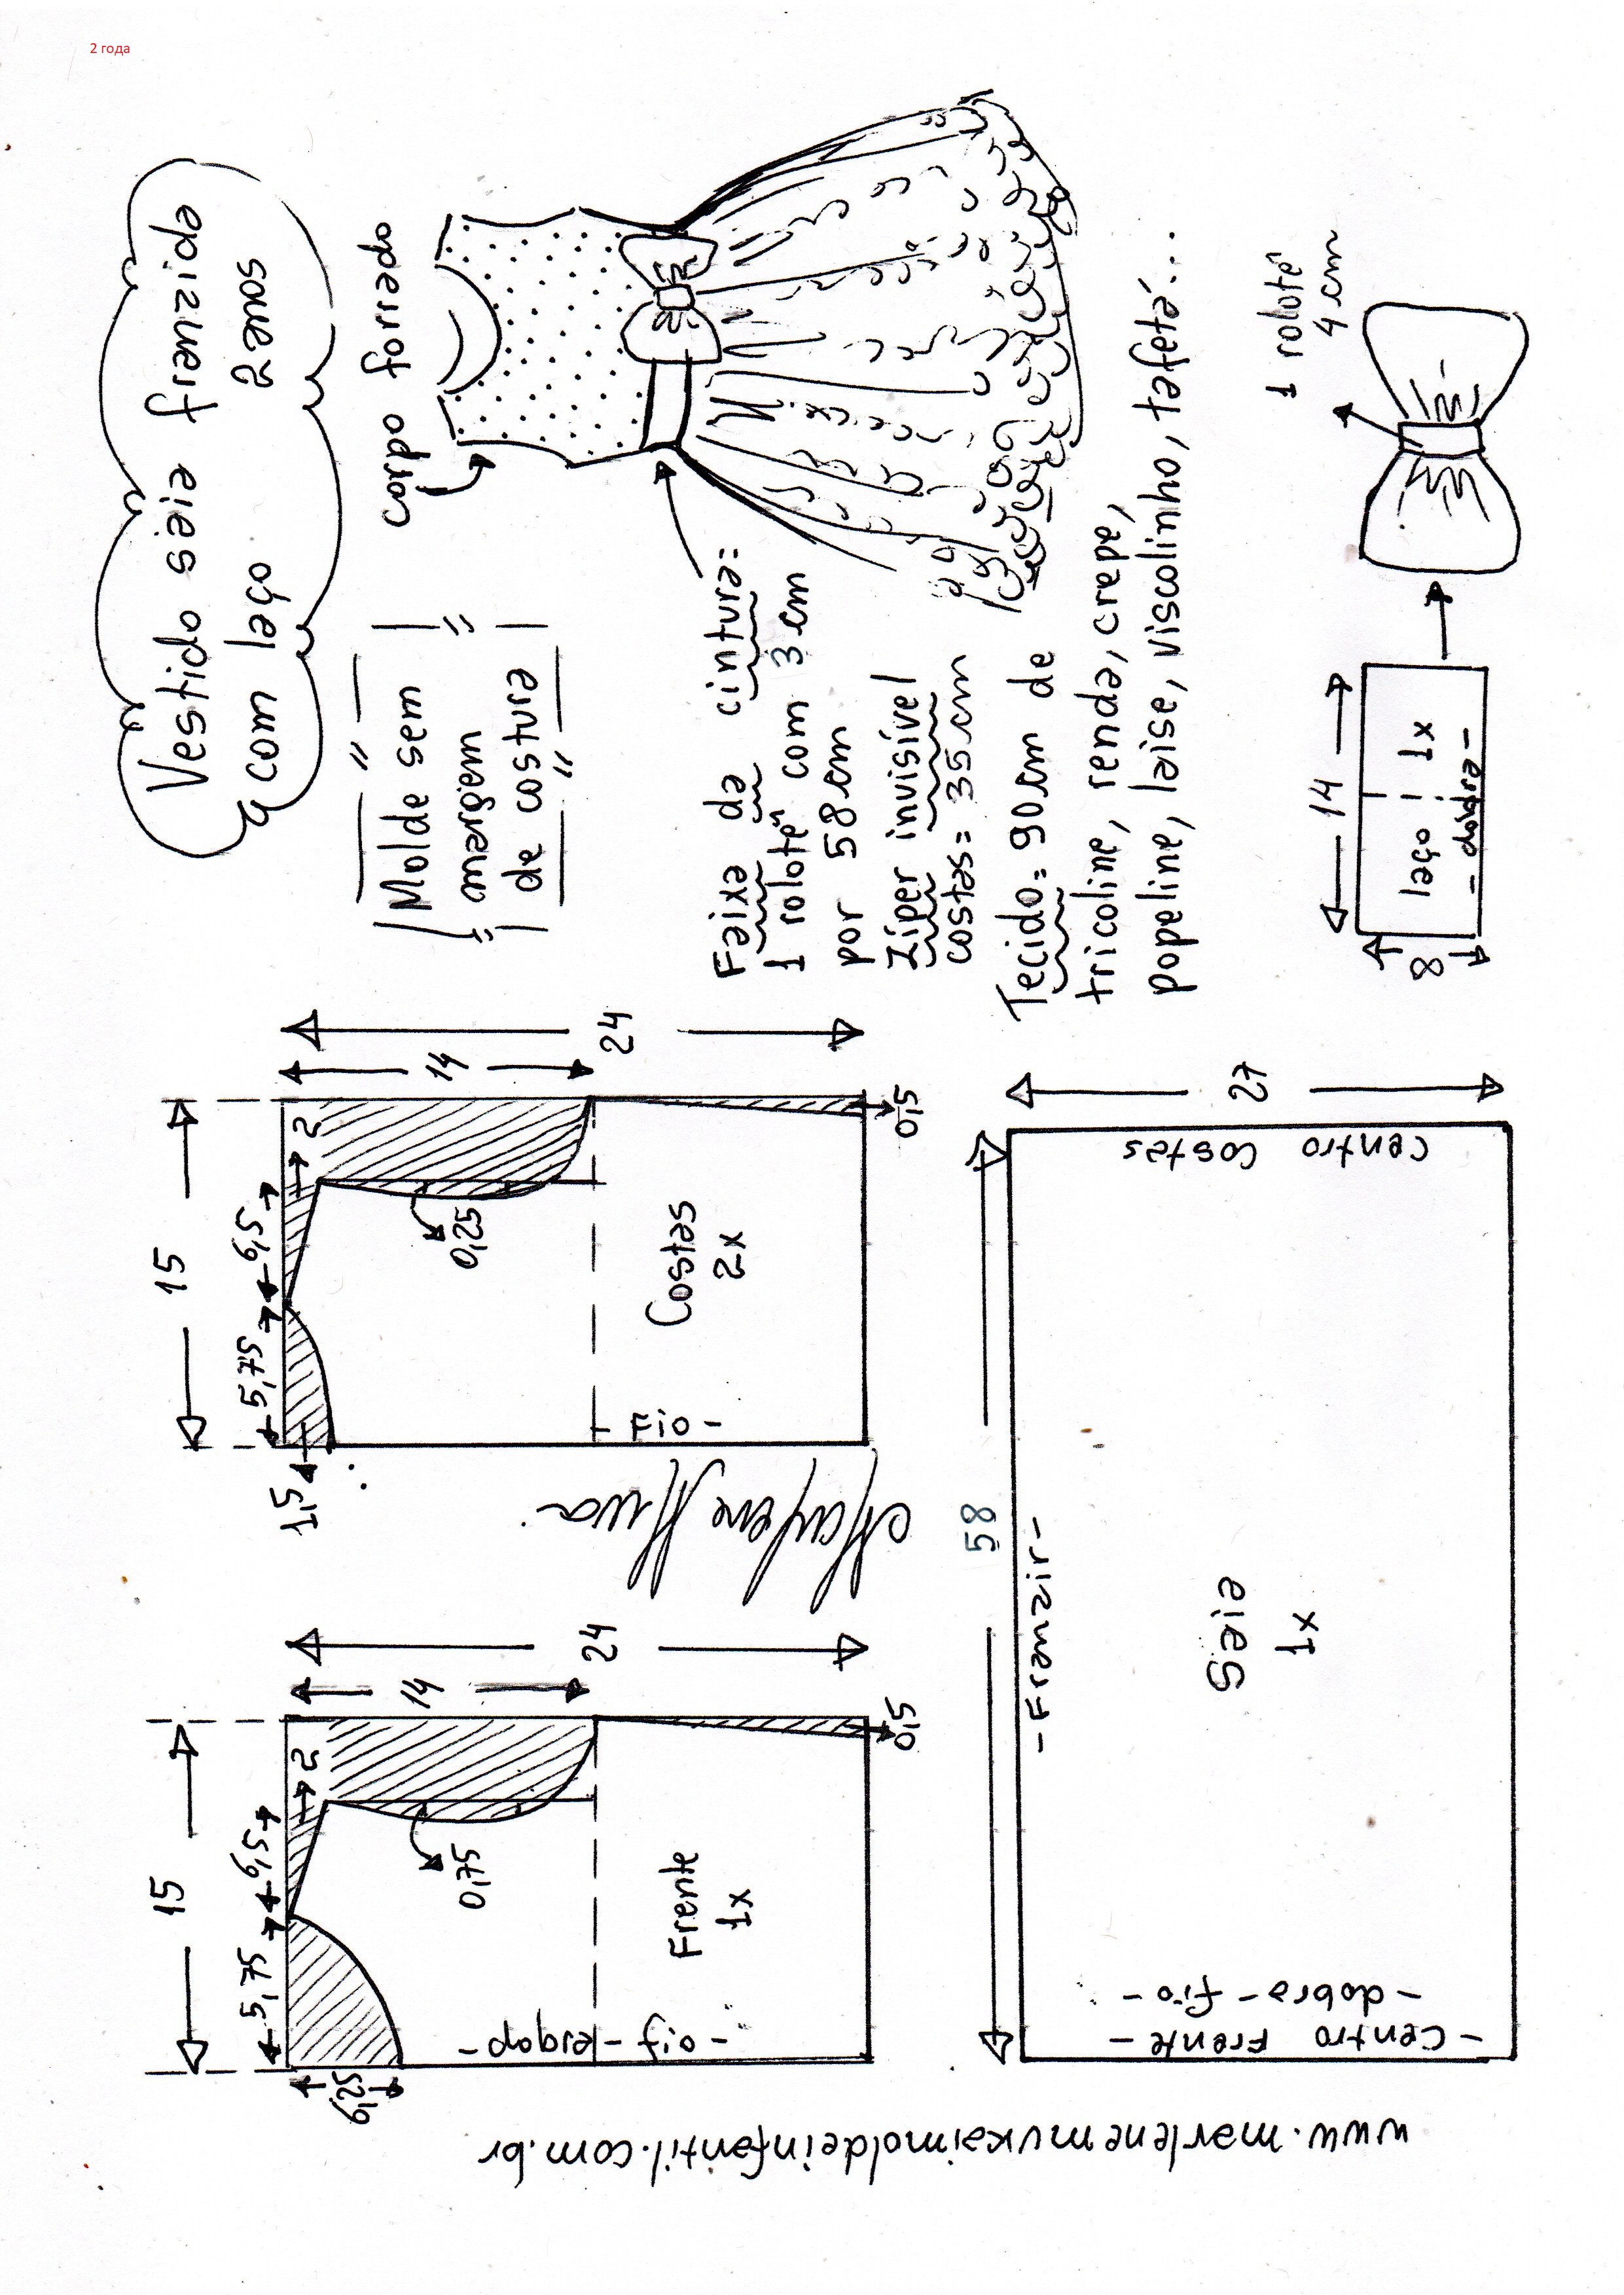 2 года
Vestido saia franzida
com laço 2 anos
corpo forrado
Molde sem
margem
de costura
Faixa da cintura:
1 rolotê com 3 cm
por 58 cm
Zíper invisível
costas = 35 cm
Tecido = 90 cm de
tricoline, renda, crepe,
popeline, laise, viscolinho, tafetá...
1 rolotê
4 cm
14
8
laço 1x
- dobra -
15
5,75
6,5
2
1,5
14
24
0,25
Costas
2x
- Fio -
0,5
15
5,75
6,5
2
14
24
0,75
Frente
1x
- dobra - fio -
0,5
58
27
- Franzir -
Saia
1x
centro costas
- centro Frente -
- dobra - fio -
www.marlenemukaimoldeinfantil.com.br